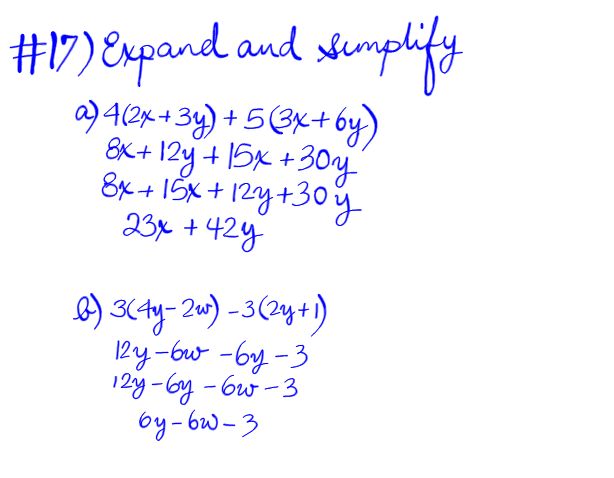 #17) Expand and simplify
a) 4(2x+3y) + 5(3x+6y)
8x + 12y + 15x + 30y
8x + 15x + 12y + 30y
23x + 42y
b) 3(4y-2w) - 3(2y+1)
12y - 6w - 6y - 3
12y - 6y - 6w - 3
6y - 6w - 3